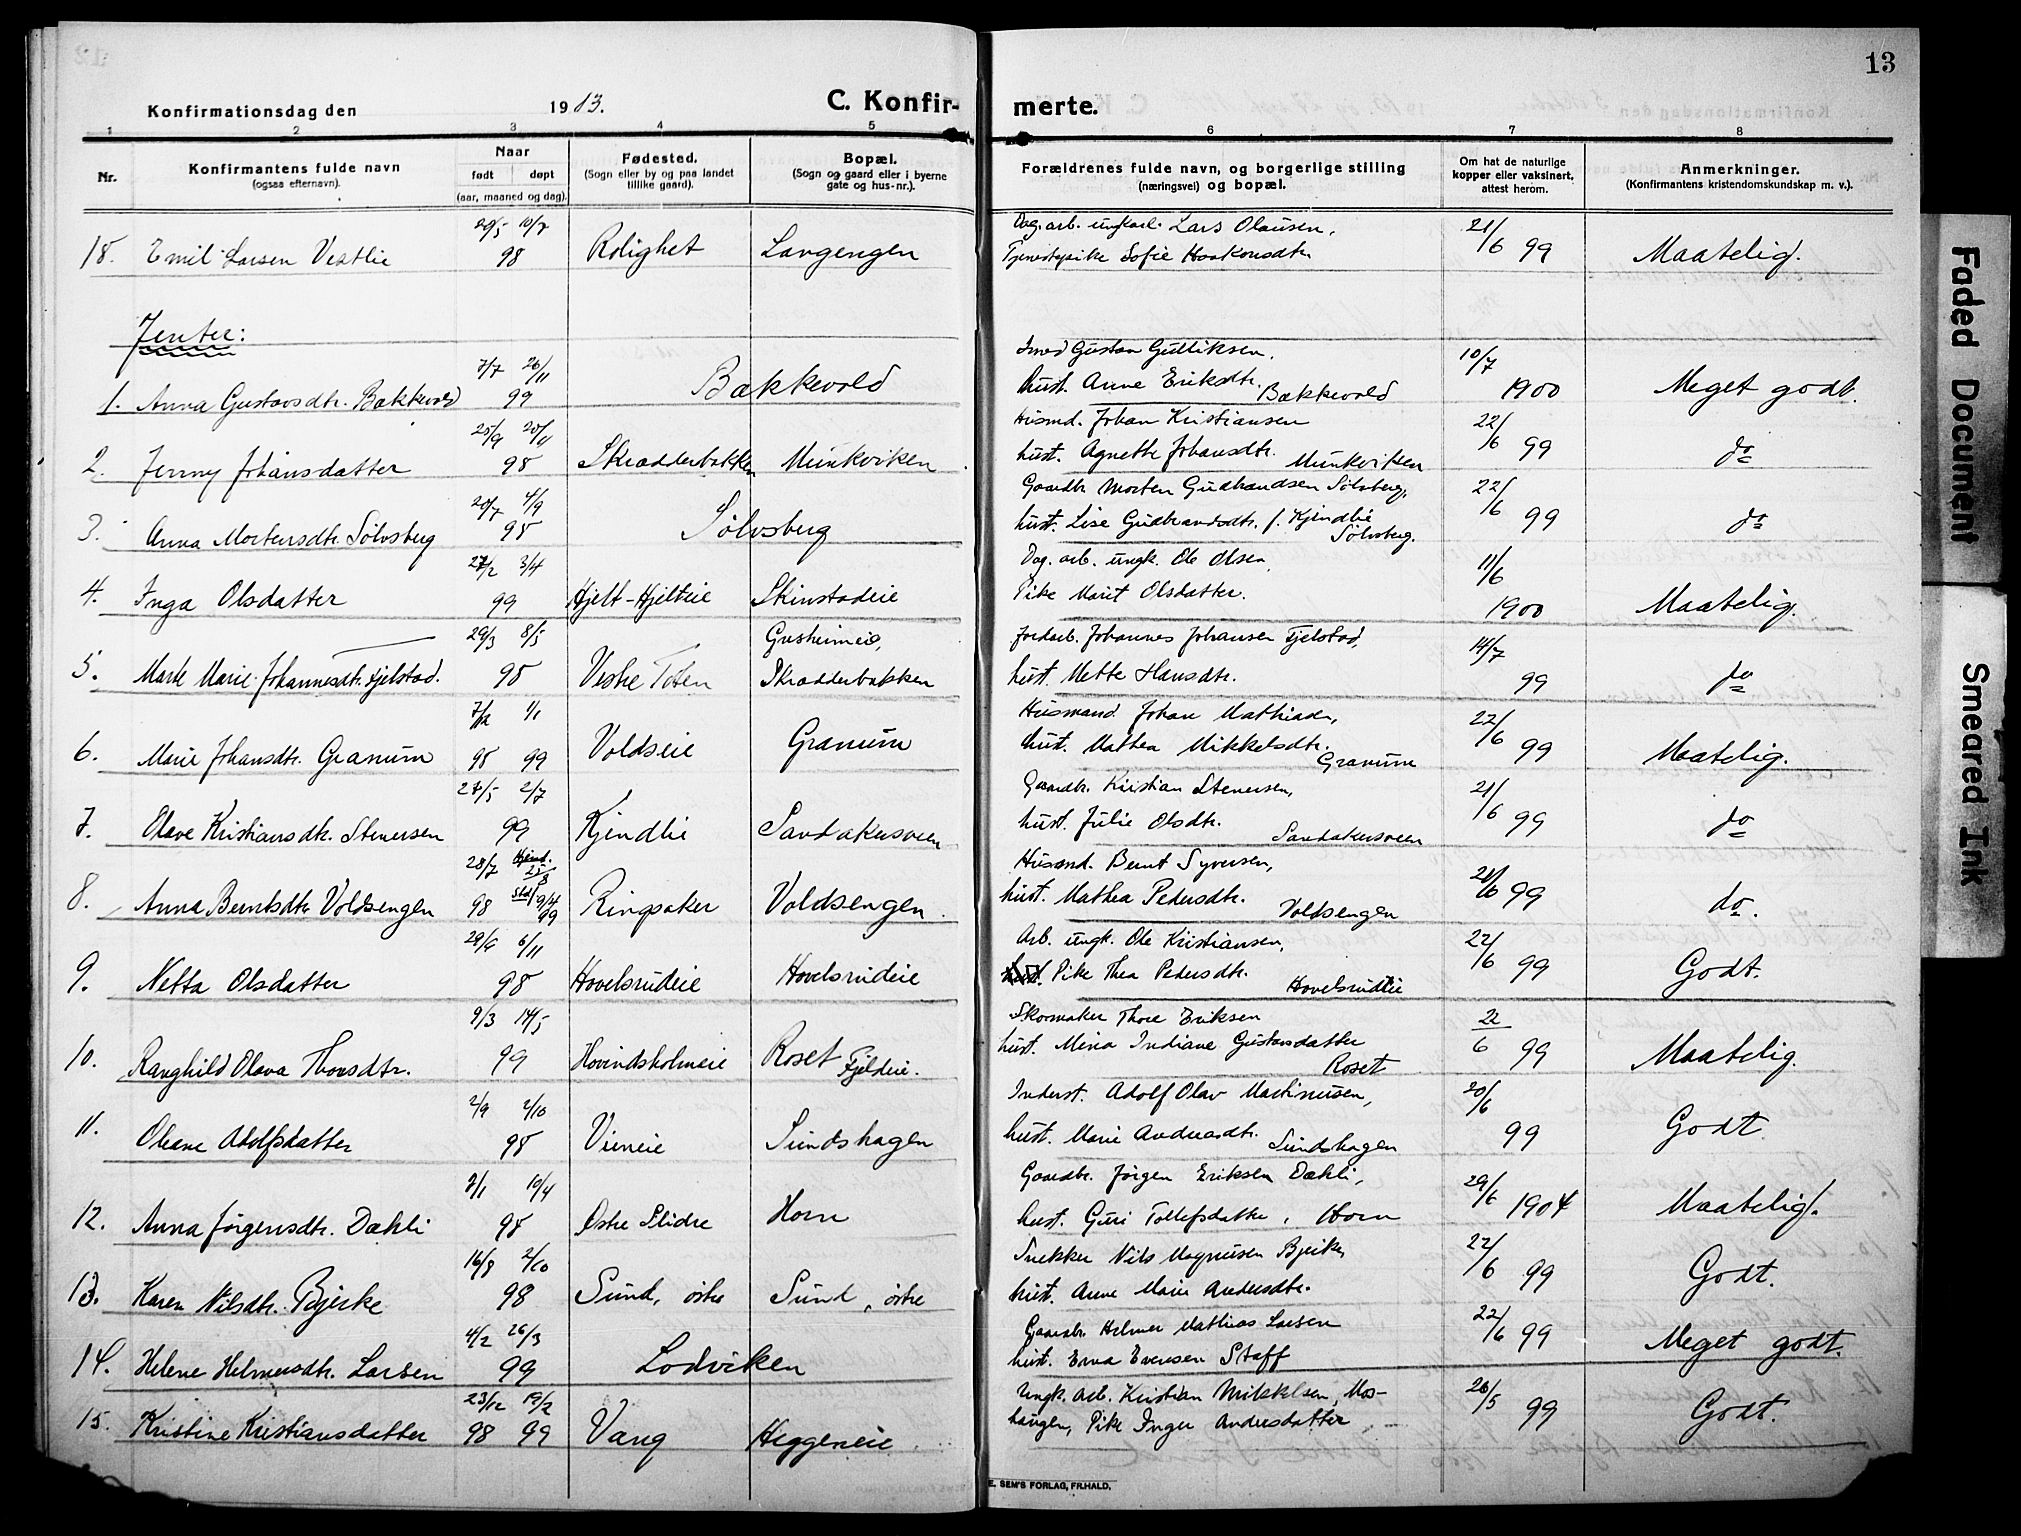 13
Konfirmationsdag den 1913. C. Konfir- merte.
1 2 3 4 5 6 7 8
Nr.
Konfirmantens fulde navn
(ogsaa efternavn).
Naar
født døpt
(aar, maaned og dag).
Fødested.
(Sogn eller by og paa landet
tillike gaard).
Bopæl.
(Sogn og gaard eller i byerne
gate og hus-nr.).
Forældrenes fulde navn, og borgerlige stilling
(næringsvei) og bopæl.
Om hat de naturlige
kopper eller vaksinert,
attest herom.
Anmerkninger.
(Konfirmantens kristendomskundskap m. v.).
29/5 10/7 Dag. arb. ungkarl. Lars Olausen, 21/6
18. Emil Larsen Vestlie 98 Rolighet Langengen Tjenestepike Sofie Haakonsdtr. 99 Maatelig.
Jenter:
7/7 26/11 Gustav Gulliksen, 10/7
1. Anna Gustavsdtr. Bækkevold 99 Bækkevold hust. Anne Eriksdtr. Bækkevold 1900 Meget godt.
25/9 20/11 Husmd. Johan Kristiansen 22/6
2. Jenny Johansdatter 98 Skrædderbakken Munkviken hust. Agnethe Johansdtr. Munkviken 99 do
20/7 4/9 Gaardbr. Morten Gudbrandsen Sølvsberg, 22/6
3. Anna Mortensdtr. Sølvsberg 98 Sølvsberg hust. Lise Gudbrandsdtr. f. Kjendlie 99 do
Sølvsberg.
27/2 3/4 Dag. arb. ungk. Ole Olsen, 11/6
4. Inga Olsdatter 99 Hjelt-Hjelteie Skinstadeie Pike Marit Olsdatter. 1900 Maatelig.
29/3 8/5 Grefsheimeie, Jordarb. Johannes Johansen Fjelstad, 14/7
5. Marte Marie Johannesdtr. Fjelstad. 98 Vestre Toten Skrædderbakken hust. Mette Hansdtr. 99 do
7/12 1/1 Husmand Johan Mathiasen, 22/6
6. Marie Johansdtr. Granum 98 99 Voldseie Granum hust. Mathea Mikkelsdtr. Granum 99 Maatelig.
27/5 2/7 Gaardbr. Kristian Stenersen, 21/6
7. Olave Kristiansdtr. Stenersen 99 Kjendlie Sandakersveen hust. Julie Olsdtr. Sandakersveen 99 do
28/7 Hjemd. 25/8 Husmd. Bernt Syversen, 21/6
8. Anna Berntsdtr. Voldsengen 98 Stdf. 9/4 99 Ringsaker Voldsengen hust. Mathea Pedersdtr. Voldsengen 99 do.
29/6 6/11 Arb. ungk. Ole Kristiansen, 22/6
9. Netta Olsdatter 98 Hovelsrudeie Hovelsrudeie hust. Pike Thea Pedersdtr. Hovelsrudeie 99 Godt.
9/3 14/5 Skomaker Thore Eriksen 22/6
10. Ranghild Olava Thoresdtr. 99 Hovindsholmeie Roset Fjeldeie. hust. Mina Indiane Gustavsdatter Roset 99 Maatelig.
2/9 2/10 Inderst. Adolf Olav Martinusen, 20/6
11. Oleane Adolfsdatter 98 Vineie Sundshagen hust. Marie Andreasdtr. Sundshagen 99 Godt
7/1 10/4 Gaardbr. Jørgen Eriksen Dæhli, 29/6
12. Anna Jørgensdtr. Dæhli 98 Østre Slidre Horn hust. Guri Tollefsdatter, Horn 1904 Maatelig.
16/8 2/10 Snekker Nils Magnusen Bjerke, 22/6
13. Karen Nilsdtr. Bjerke 98 Sund, østre Sund, østre hust. Anne Marie Andersdtr. 99 Godt.
4/2 26/3 Gaardbr. Helmer Mathias Larsen 22/6
14. Helene Helmersdtr. Larsen 99 Lodviken hust. Erna Evensen Staff 99 Meget godt.
23/12 19/2 Ungk. arb. Kristian Mikkelsen, Mos- 26/5
15. Kristine Kristiansdatter 98 99 Vang Heggeneie haugen, Pike Inger Andersdatter 99 Godt.
E. SEM'S FORLAG, FR.HALD.
Faded Document
Smeared Ink